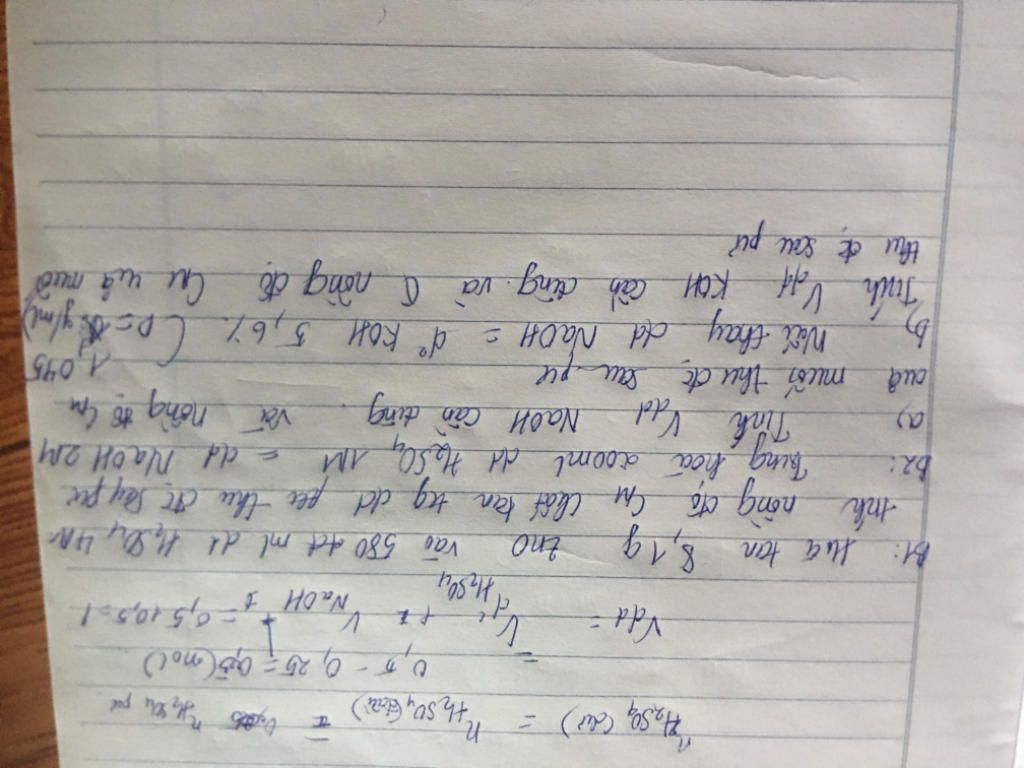 nH₂SO₄(dư) = nH₂SO₄ - nH₂SO₄ pứ
0,5 - 0,25 = 0,25 (mol)
Vdd = Vdd H₂SO₄ + VNaOH = 0,5+0,5=1
B1: Hoà tan 8,1g ZnO vào 580 ml dd H₂SO₄ 4M
tính nồng độ CM chất tan trg dd thu đc sau pứ
B2: Trung hoà 200ml dd H₂SO₄ 1M = dd NaOH 2M
a) Tính Vdd NaOH cần dùng và nồng độ CM
của muối thu đc sau pứ
b) Nếu thay dd NaOH = dd KOH 5,6% (D = 1,045 g/ml)
Tính Vdd KOH cần dùng và nồng độ CM của muối
thu đc sau pứ